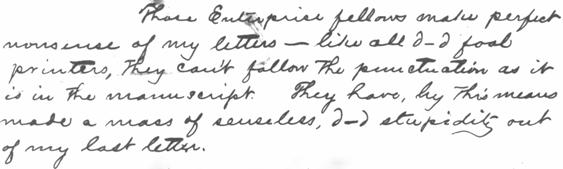 Those Enterprise fellows make perfect
nonsense of my letters — like all d—d fool
printers, they can't follow the punctuation as it
is in the manuscript. They have, by this means
made a mass of senseless, d—d stupidity out
of my last letter.